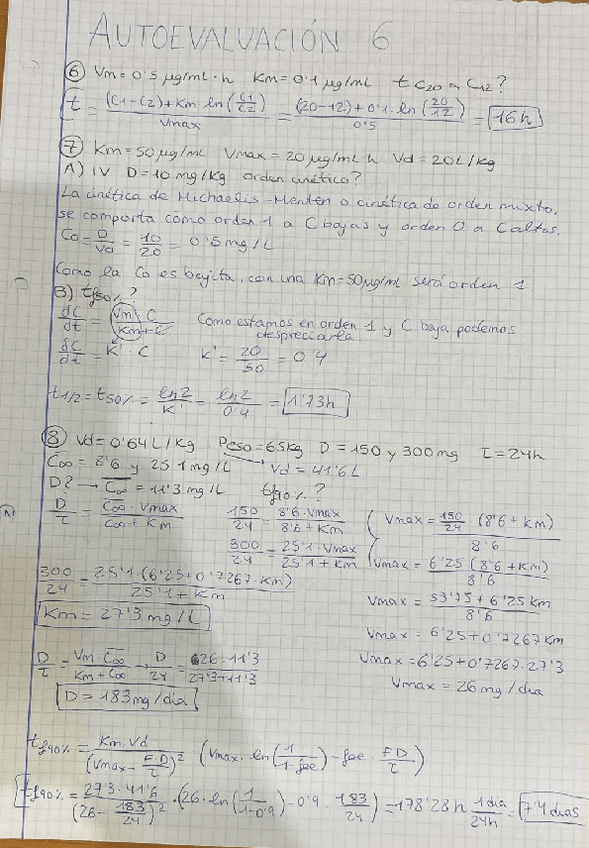 AUTOEVALUACIÓN 6
⑥ Vm = 0'5 µg/mL·h Km = 0'1 µg/mL t C20 a C12?
t = ((C1-C2) + Km ln(C1/C2)) / Vmax = ((20-12) + 0'1 · ln(20/12)) / 0'5 = 16h
⑦ Km = 50 µg/mL Vmax = 20 µg/mL h Vd = 20L/kg
A) IV D = 10 mg/kg orden cinético?
La cinética de Michaelis-Menten o cinética de orden mixto,
se comporta como orden 1 a C bajas y orden 0 a C altas.
Co = D/Vd = 10/20 = 0'5 mg/L
Como la Co es bajita, con una Km = 50 µg/mL será orden 1
B) tf50%?
dC/dt = Vm · C / Km + C Como estamos en orden 1 y C baja podemos
despreciarla
dC/dt = K' · C K' = 20/50 = 0'4
t1/2 = t50% = ln2/K' = ln2/0'4 = 1'73h
⑧ Vd = 0'64 L/kg Peso = 65kg D = 150 y 300mg τ = 24h
C∞ = 8'6 y 25'1 mg/L → Vd = 41'6L
D? → C∞ = 11'3 mg/L tf90%?
D/τ = C∞ · Vmax / C∞ + Km 150/24 = 8'6 · Vmax / 8'6 + Km Vmax = 150/24 · (8'6 + Km) / 8'6
300/24 = 25'1 Vmax / 25'1 + Km Vmax = 6'25 (8'6 + Km) / 8'6
300/24 = 25'1 (6'25 + 0'7267 · Km) / 25'1 + Km Vmax = 53'75 + 6'25 Km / 8'6
Km = 27'3 mg/L Vmax = 6'25 + 0'7267 Km
D/τ = Vm · C∞ / Km + C∞ → D/24 = 26 · 11'3 / 27'3 + 11'3 Vmax = 6'25 + 0'7267 · 27'3
D = 183 mg/día Vmax = 26 mg/dia
tf90% = Km · Vd / (Vmax - F·D/τ)² (Vmax · ln(1/1-fee) - fee · FD/τ)
tf90% = 27'3 · 41'6 / (26 - 183/24)² · (26 · ln(1/1-0'9) - 0'9 · 183/24) = 178'28h 1dia/24h = 7'4 dias